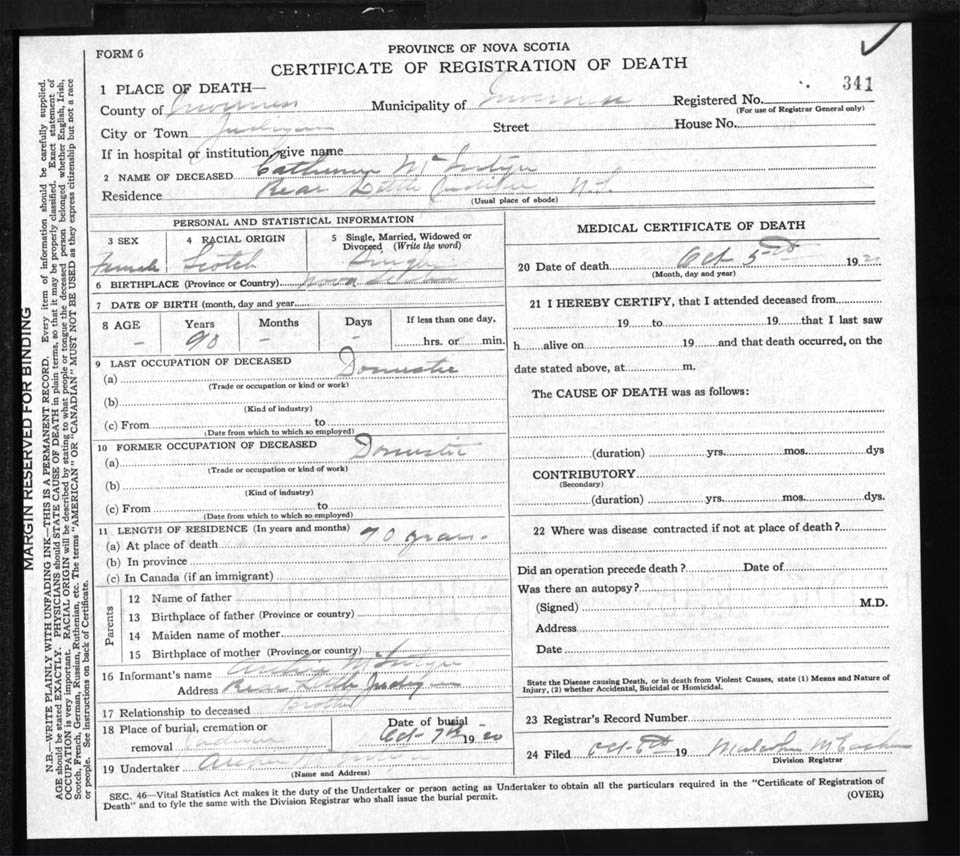 FORM 6
PROVINCE OF NOVA SCOTIA
CERTIFICATE OF REGISTRATION OF DEATH
341
1 PLACE OF DEATH—
County of Inverness Municipality of Inverness Registered No.
(For use of Registrar General only)
City or Town Judique Street House No.
If in hospital or institution, give name
2 NAME OF DECEASED Catherine McIntyre
Residence Rear Little Judique N.S.
(Usual place of abode)
PERSONAL AND STATISTICAL INFORMATION
3 SEX 4 RACIAL ORIGIN 5 Single, Married, Widowed or Divorced (Write the word)
Female Scotch Single
6 BIRTHPLACE (Province or Country) Nova Scotia
7 DATE OF BIRTH (month, day and year)
8 AGE Years Months Days If less than one day,
– 90 – – hrs. or min.
9 LAST OCCUPATION OF DECEASED
(a) Domestic
(Trade or occupation or kind or work)
(b)
(Kind of industry)
(c) From to
(Date from which to which so employed)
10 FORMER OCCUPATION OF DECEASED
(a) Domestic
(Trade or occupation or kind of work)
(b)
(Kind of industry)
(c) From to
(Date from which to which so employed)
11 LENGTH OF RESIDENCE (In years and months)
(a) At place of death 90 years
(b) In province
(c) In Canada (if an immigrant)
Parents
12 Name of father
13 Birthplace of father (Province or country)
14 Maiden name of mother
15 Birthplace of mother (Province or country)
16 Informant's name McIntyre
Address Rear Little Judique
17 Relationship to deceased Brother
18 Place of burial, cremation or removal Judique
Date of burial
Oct 7th 1920
19 Undertaker
(Name and Address)
MEDICAL CERTIFICATE OF DEATH
20 Date of death Oct 192
(Month, day and year)
21 I HEREBY CERTIFY, that I attended deceased from
19 to 19 that I last saw
h alive on 19 and that death occurred, on the
date stated above, at m.
The CAUSE OF DEATH was as follows:
(duration) yrs. mos. dys
CONTRIBUTORY
(Secondary)
(duration) yrs. mos. dys.
22 Where was disease contracted if not at place of death?
Did an operation precede death? Date of
Was there an autopsy?
(Signed) M.D.
Address
Date
State the Disease causing Death, or in death from Violent Causes, state (1) Means and Nature of
Injury, (2) whether Accidental, Suicidal or Homicidal.
23 Registrar's Record Number
24 Filed Oct 6th 19 Malcolm
Division Registrar
SEC. 46—Vital Statistics Act makes it the duty of the Undertaker or person acting as Undertaker to obtain all the particulars required in the "Certificate of Registration of
Death" and to fyle the same with the Division Registrar who shall issue the burial permit.
(OVER)
MARGIN RESERVED FOR BINDING
N.B.—WRITE PLAINLY WITH UNFADING INK—THIS IS A PERMANENT RECORD. Every item of information should be carefully supplied.
AGE should be stated EXACTLY. PHYSICIANS should STATE CAUSE OF DEATH in plain terms, so that it may be properly classified. Exact statement of
OCCUPATION is very important. RACIAL ORIGIN will be described by stating to what people or tongue the deceased person belonged whether English, Irish,
Scotch, French, German, Russian, Ruthenian, etc. The terms "AMERICAN" OR "CANADIAN" MUST NOT BE USED as they express citizenship but not a race
or people. See instructions on back of Certificate.